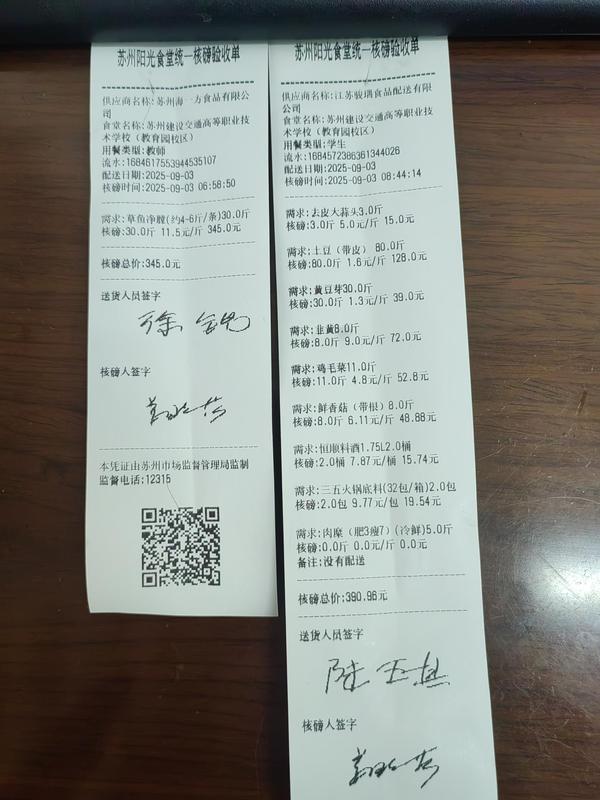 苏州阳光食堂统一核磅验收单
供应商名称:苏州海一方食品有限公
司
食堂名称:苏州建设交通高等职业技
术学校（教育园校区）
用餐类型:教师
流水:1684617553944535107
配送日期:2025-09-03
核磅时间:2025-09-03 06:58:50
需求:草鱼净膛(约4-6斤/条)30.0斤
核磅:30.0斤 11.5元/斤 345.0元
核磅总价:345.0元
送货人员签字
核磅人签字
本凭证由苏州市场监督管理局监制
监督电话:12315
苏州阳光食堂统一核磅验收单
供应商名称:江苏骏瑞食品配送有限
公司
食堂名称:苏州建设交通高等职业技
术学校（教育园校区）
用餐类型:学生
流水:1684572386361344026
配送日期:2025-09-03
核磅时间:2025-09-03 08:44:14
需求:去皮大蒜头3.0斤
核磅:3.0斤 5.0元/斤 15.0元
需求:土豆（带皮） 80.0斤
核磅:80.0斤 1.6元/斤 128.0元
需求:黄豆芽30.0斤
核磅:30.0斤 1.3元/斤 39.0元
需求:韭黄8.0斤
核磅:8.0斤 9.0元/斤 72.0元
需求:鸡毛菜11.0斤
核磅:11.0斤 4.8元/斤 52.8元
需求:鲜香菇（带根）8.0斤
核磅:8.0斤 6.11元/斤 48.88元
需求:恒顺料酒1.75L2.0桶
核磅:2.0桶 7.87元/桶 15.74元
需求:三五火锅底料(32包/箱)2.0包
核磅:2.0包 9.77元/包 19.54元
需求:肉糜（肥3瘦7）(冷鲜)5.0斤
核磅:0.0斤 0.0元/斤 0.0元
备注:没有配送
核磅总价:390.96元
送货人员签字
核磅人签字